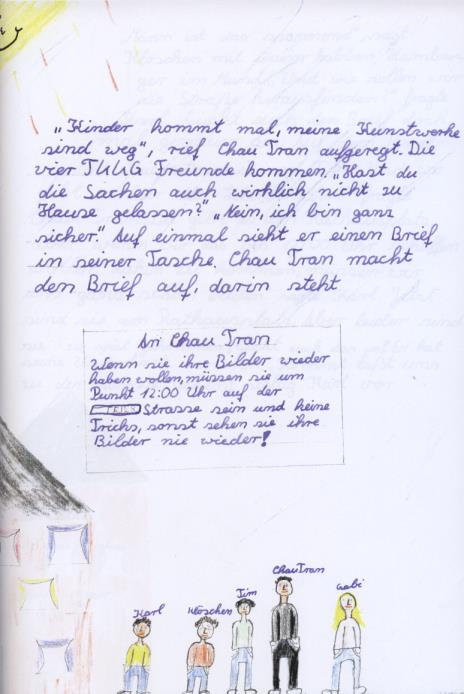 „Kinder kommt mal, meine Kunstwerke
sind weg", rief Chau Tran aufgeregt. Die
vier TKKG Freunde kommen. „Hast du
die Sachen auch wirklich nicht zu
Hause gelassen?" „Nein, ich bin ganz
sicher." Auf einmal sieht er einen Brief
in seiner Tasche. Chau Tran macht
den Brief auf, darin steht
An Chau Tran
Wenn sie ihre Bilder wieder
haben wollen, müssen sie um
Punkt 12:00 Uhr auf der
Strasse sein und keine
Tricks, sonst sehen sie ihre
Bilder nie wieder!
Karl
Klöschen
Tim
Chau Tran
Gabi